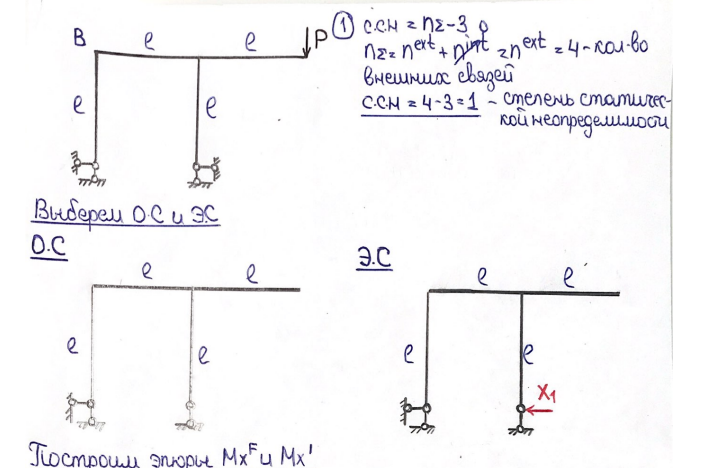 ① С.С.Н = nΣ-3
B ℓ ℓ P
nΣ = n^ext + n^int = n^ext = 4 - кол-во
0
внешних связей
ℓ ℓ
С.С.Н = 4-3 = 1 - степень статичес-
кой неопределимости
Выберем О.С и Э.С
О.С
Э.С
ℓ ℓ
ℓ ℓ
ℓ ℓ
ℓ ℓ
X₁
Построим эпюры Mx^F и Mx'